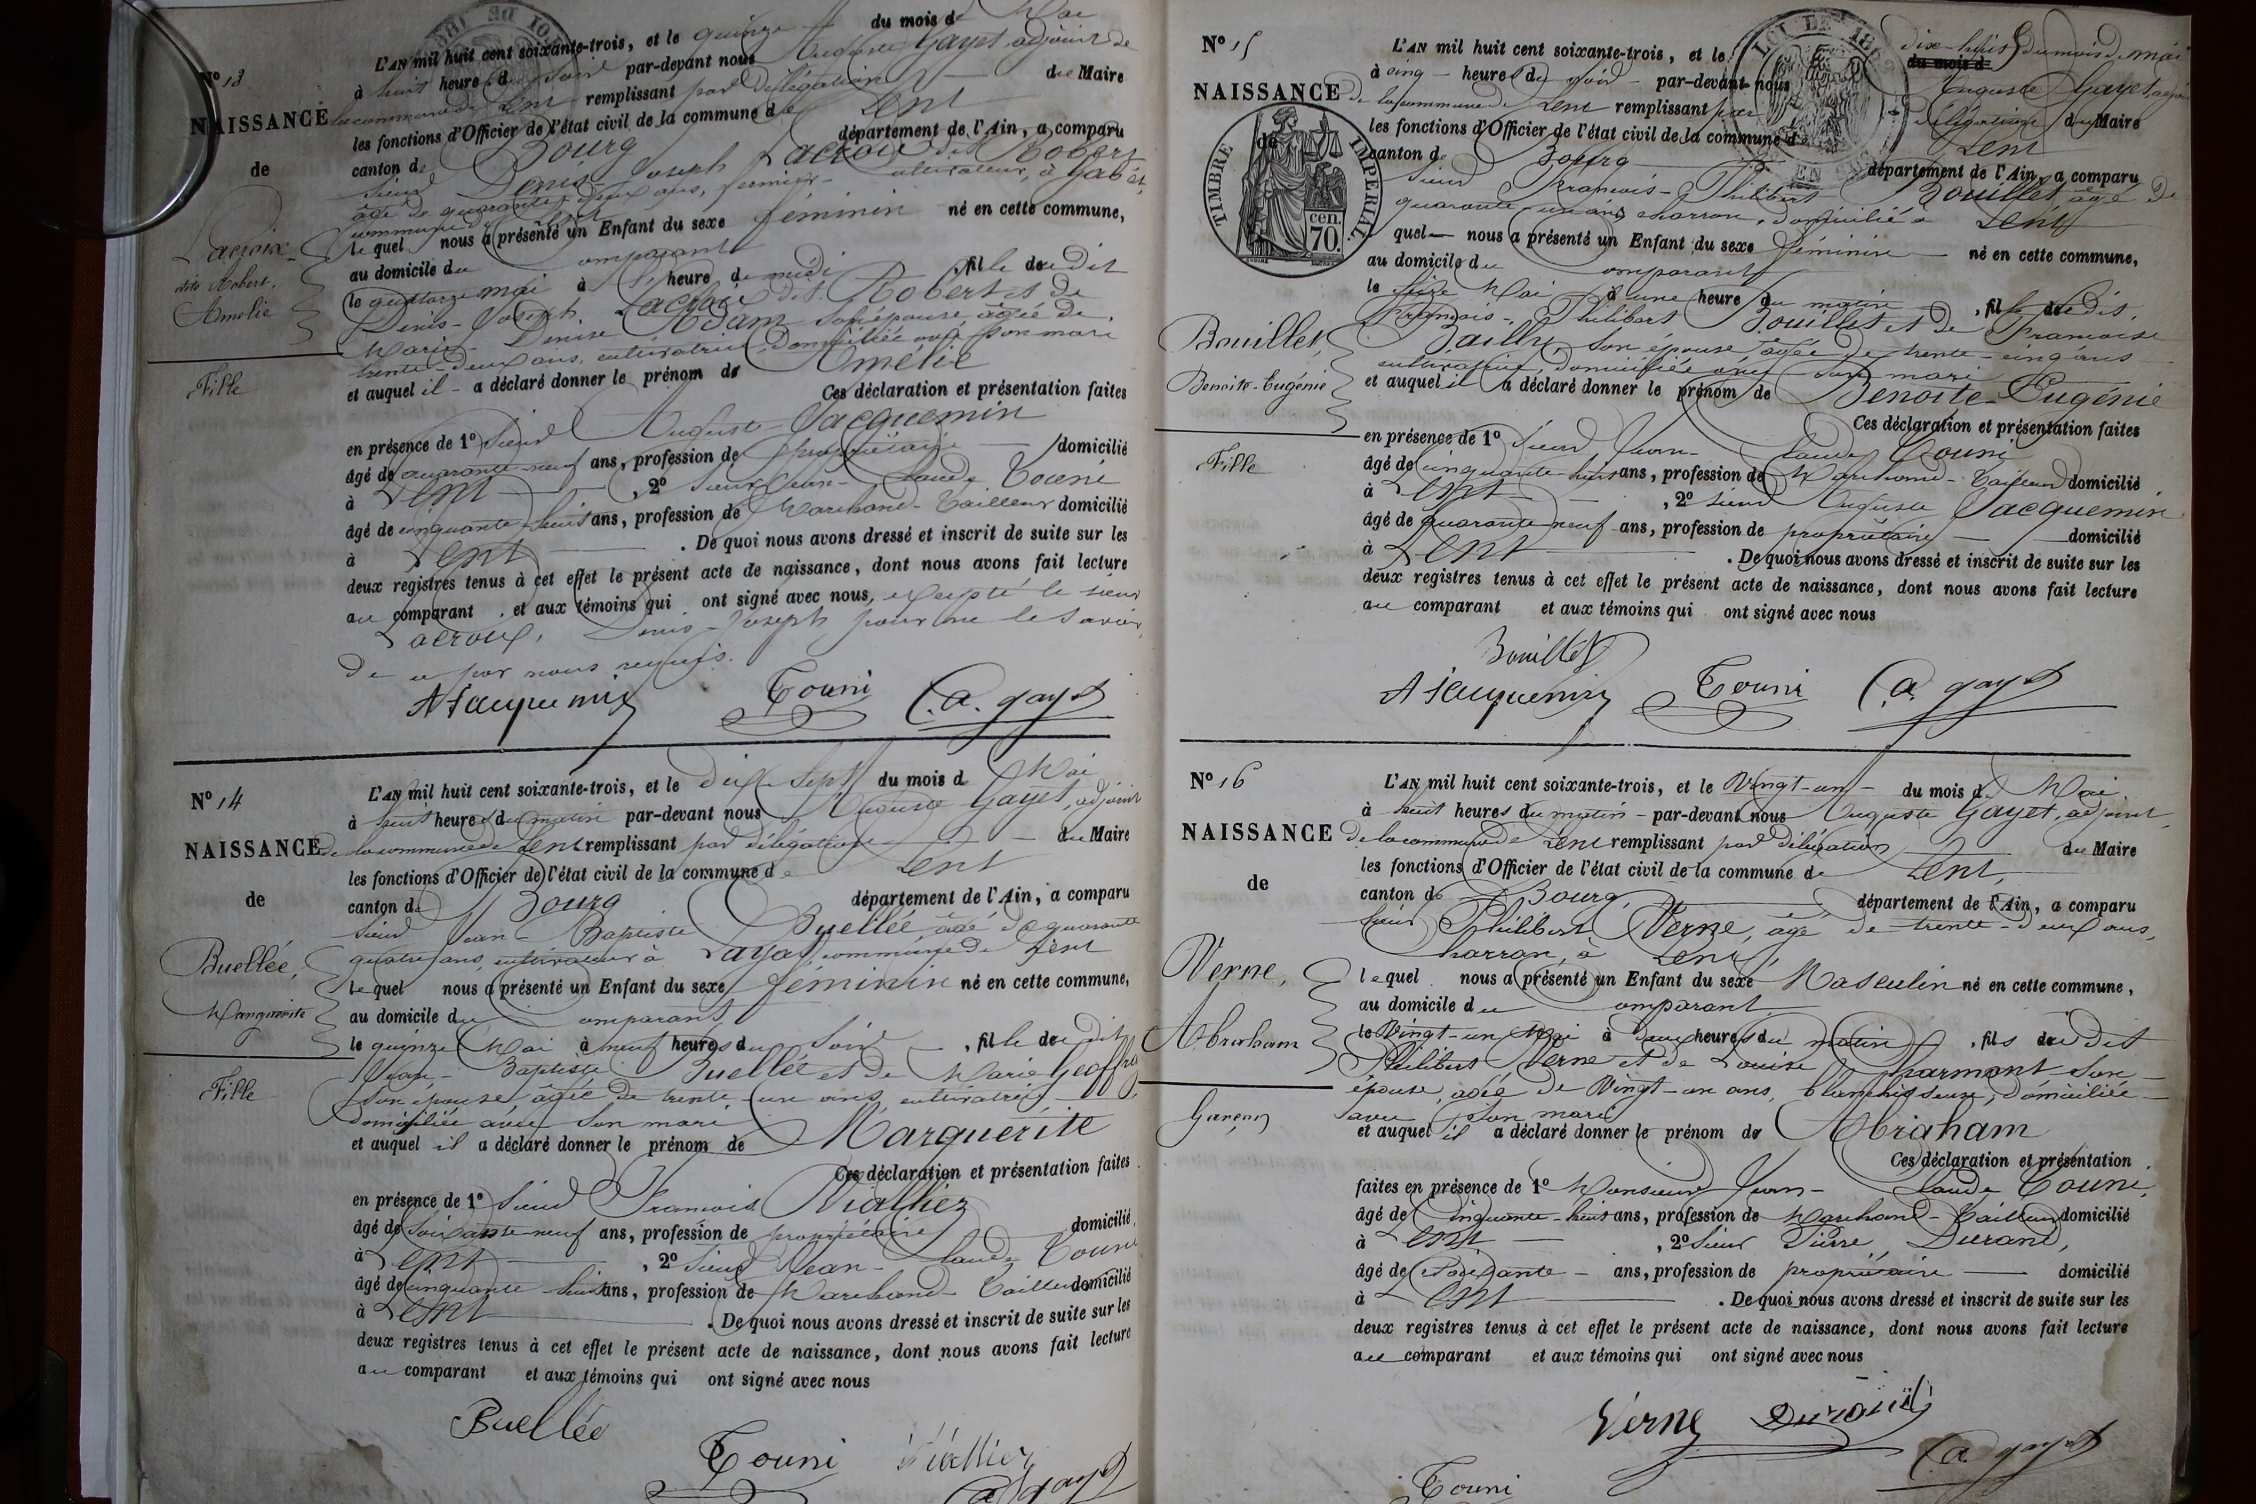 N° 13
NAISSANCE
de
Lacroix
dite Robert,
Amélie
Fille
L'AN mil huit cent soixante-trois, et le quinze du mois de Mai
à huit heures du soir par-devant nous Auguste Gayet, adjoint de
la commune de Lent remplissant par délégation du Maire
les fonctions d'Officier de l'état civil de la commune de Lent
canton de Bourg département de l'Ain, a comparu
sieur Denis Joseph Lacroix dit Robert
âgé de quarante-deux ans, fermier-cultivateur, à
commune de Lent
le quel nous a présenté un Enfant du sexe féminin né en cette commune,
au domicile du comparant
le quatorze mai à heure de midi, fille de dit
Denis-Joseph Lacroix dit Robert et de
Marie-Denise Adam son épouse âgée de
trente-deux ans, cultivatrice, domiciliée avec son mari
et auquel il a déclaré donner le prénom de Amélie
Ces déclaration et présentation faites
en présence de 1° Sieur Auguste Jacquemin
âgé de quarante-neuf ans, profession de propriétaire domicilié
à Lent, 2° Sieur Jean-Claude Touni
âgé de cinquante-huit ans, profession de Marchand-Tailleur domicilié
à Lent. De quoi nous avons dressé et inscrit de suite sur les
deux registres tenus à cet effet le présent acte de naissance, dont nous avons fait lecture
au comparant, et aux témoins qui ont signé avec nous, excepté le sieur
Lacroix, Denis-Joseph pour ne le savoir,
de ce par nous requis.
A Jacquemin Touni C. a. gayet
N° 14
NAISSANCE
de
Buellée,
Marguerite
Fille
L'AN mil huit cent soixante-trois, et le dix-sept du mois d Mai
à huit heures du matin par-devant nous Auguste Gayet, adjoint
de la commune de Lent remplissant par délégation du Maire
les fonctions d'Officier de l'état civil de la commune de Lent
canton de Bourg département de l'Ain, a comparu
sieur Jean-Baptiste Buellée âgé de quarante
quatre ans, cultivateur à Layat, commune de Lent
le quel nous a présenté un Enfant du sexe féminin né en cette commune,
au domicile du comparant
le quinze Mai à neuf heures du soir, fille du dit
Jean-Baptiste Buellée et de Marie Geoffray
son épouse âgée de trente-un ans, cultivatrice
domiciliée avec son mari
et auquel il a déclaré donner le prénom de Marguerite
Ces déclaration et présentation faites
en présence de 1° Sieur François Niallier
âgé de soixante-neuf ans, profession de propriétaire domicilié
à Lent, 2° Sieur Jean-Claude Touni
âgé de cinquante-huit ans, profession de Marchand-Tailleur domicilié
à Lent. De quoi nous avons dressé et inscrit de suite sur les
deux registres tenus à cet effet le présent acte de naissance, dont nous avons fait lecture
au comparant et aux témoins qui ont signé avec nous
Buellée
Touni
C. a. gayet
N° 15
NAISSANCE
de
TIMBRE IMPERIAL
cen. 70.
Bouillet,
Benoite-Eugénie
Fille
L'AN mil huit cent soixante-trois, et le dix-huit du mois de mai
du mois d
à cinq heures du soir par-devant nous Auguste Gayet, adjoint
de la commune de Lent remplissant par délégation du Maire
les fonctions d'Officier de l'état civil de la commune de Lent
canton de Bourg département de l'Ain, a comparu
Sieur François-Philibert Bouillet, âgé de
quarante-un ans, charron, domicilié à Lent
quel nous a présenté un Enfant du sexe féminin né en cette commune,
au domicile du comparant
le seize Mai à une heure du matin, fille du dit,
François-Philibert Bouillet et de Françoise
Bailly, son épouse âgée de trente-cinq ans
cultivatrice, domiciliée avec son mari
et auquel il a déclaré donner le prénom de Benoite-Eugénie
Ces déclaration et présentation faites
en présence de 1° Sieur Jean-Claude Touni
âgé de cinquante-huit ans, profession de Marchand-Tailleur domicilié
à Lent, 2° Sieur Auguste Jacquemin
âgé de quarante-neuf ans, profession de propriétaire domicilié
à Lent. De quoi nous avons dressé et inscrit de suite sur les
deux registres tenus à cet effet le présent acte de naissance, dont nous avons fait lecture
au comparant et aux témoins qui ont signé avec nous
Bouillet
A Jacquemin Touni C. a. gayet
N° 16
NAISSANCE
de
Verne,
Abraham
Garçon
L'AN mil huit cent soixante-trois, et le Vingt-un du mois de Mai
à huit heures du matin par-devant nous Auguste Gayet, adjoint
de la commune de Lent remplissant par délégation du Maire
les fonctions d'Officier de l'état civil de la commune de Lent,
canton de Bourg département de l'Ain, a comparu
Sieur Philibert Verne, âgé de trente-deux ans,
charron, à Lent,
lequel nous a présenté un Enfant du sexe Masculin né en cette commune,
au domicile du comparant
le Vingt-un Mai à deux heures du matin, fils du dit
Philibert Verne et de Louise Charmont son
épouse, âgée de Vingt-un ans, blanchisseuse, domiciliée
avec son mari
et auquel il a déclaré donner le prénom de Abraham
Ces déclaration et présentation
faites en présence de 1° Monsieur Jean-Claude Touni,
âgé de cinquante-huit ans, profession de Marchand-Tailleur domicilié
à Lent, 2° Sieur Pierre Durand,
âgé de soixante ans, profession de propriétaire domicilié
à Lent. De quoi nous avons dressé et inscrit de suite sur les
deux registres tenus à cet effet le présent acte de naissance, dont nous avons fait lecture
au comparant et aux témoins qui ont signé avec nous
Verne Durand
C. a. gayet
Touni